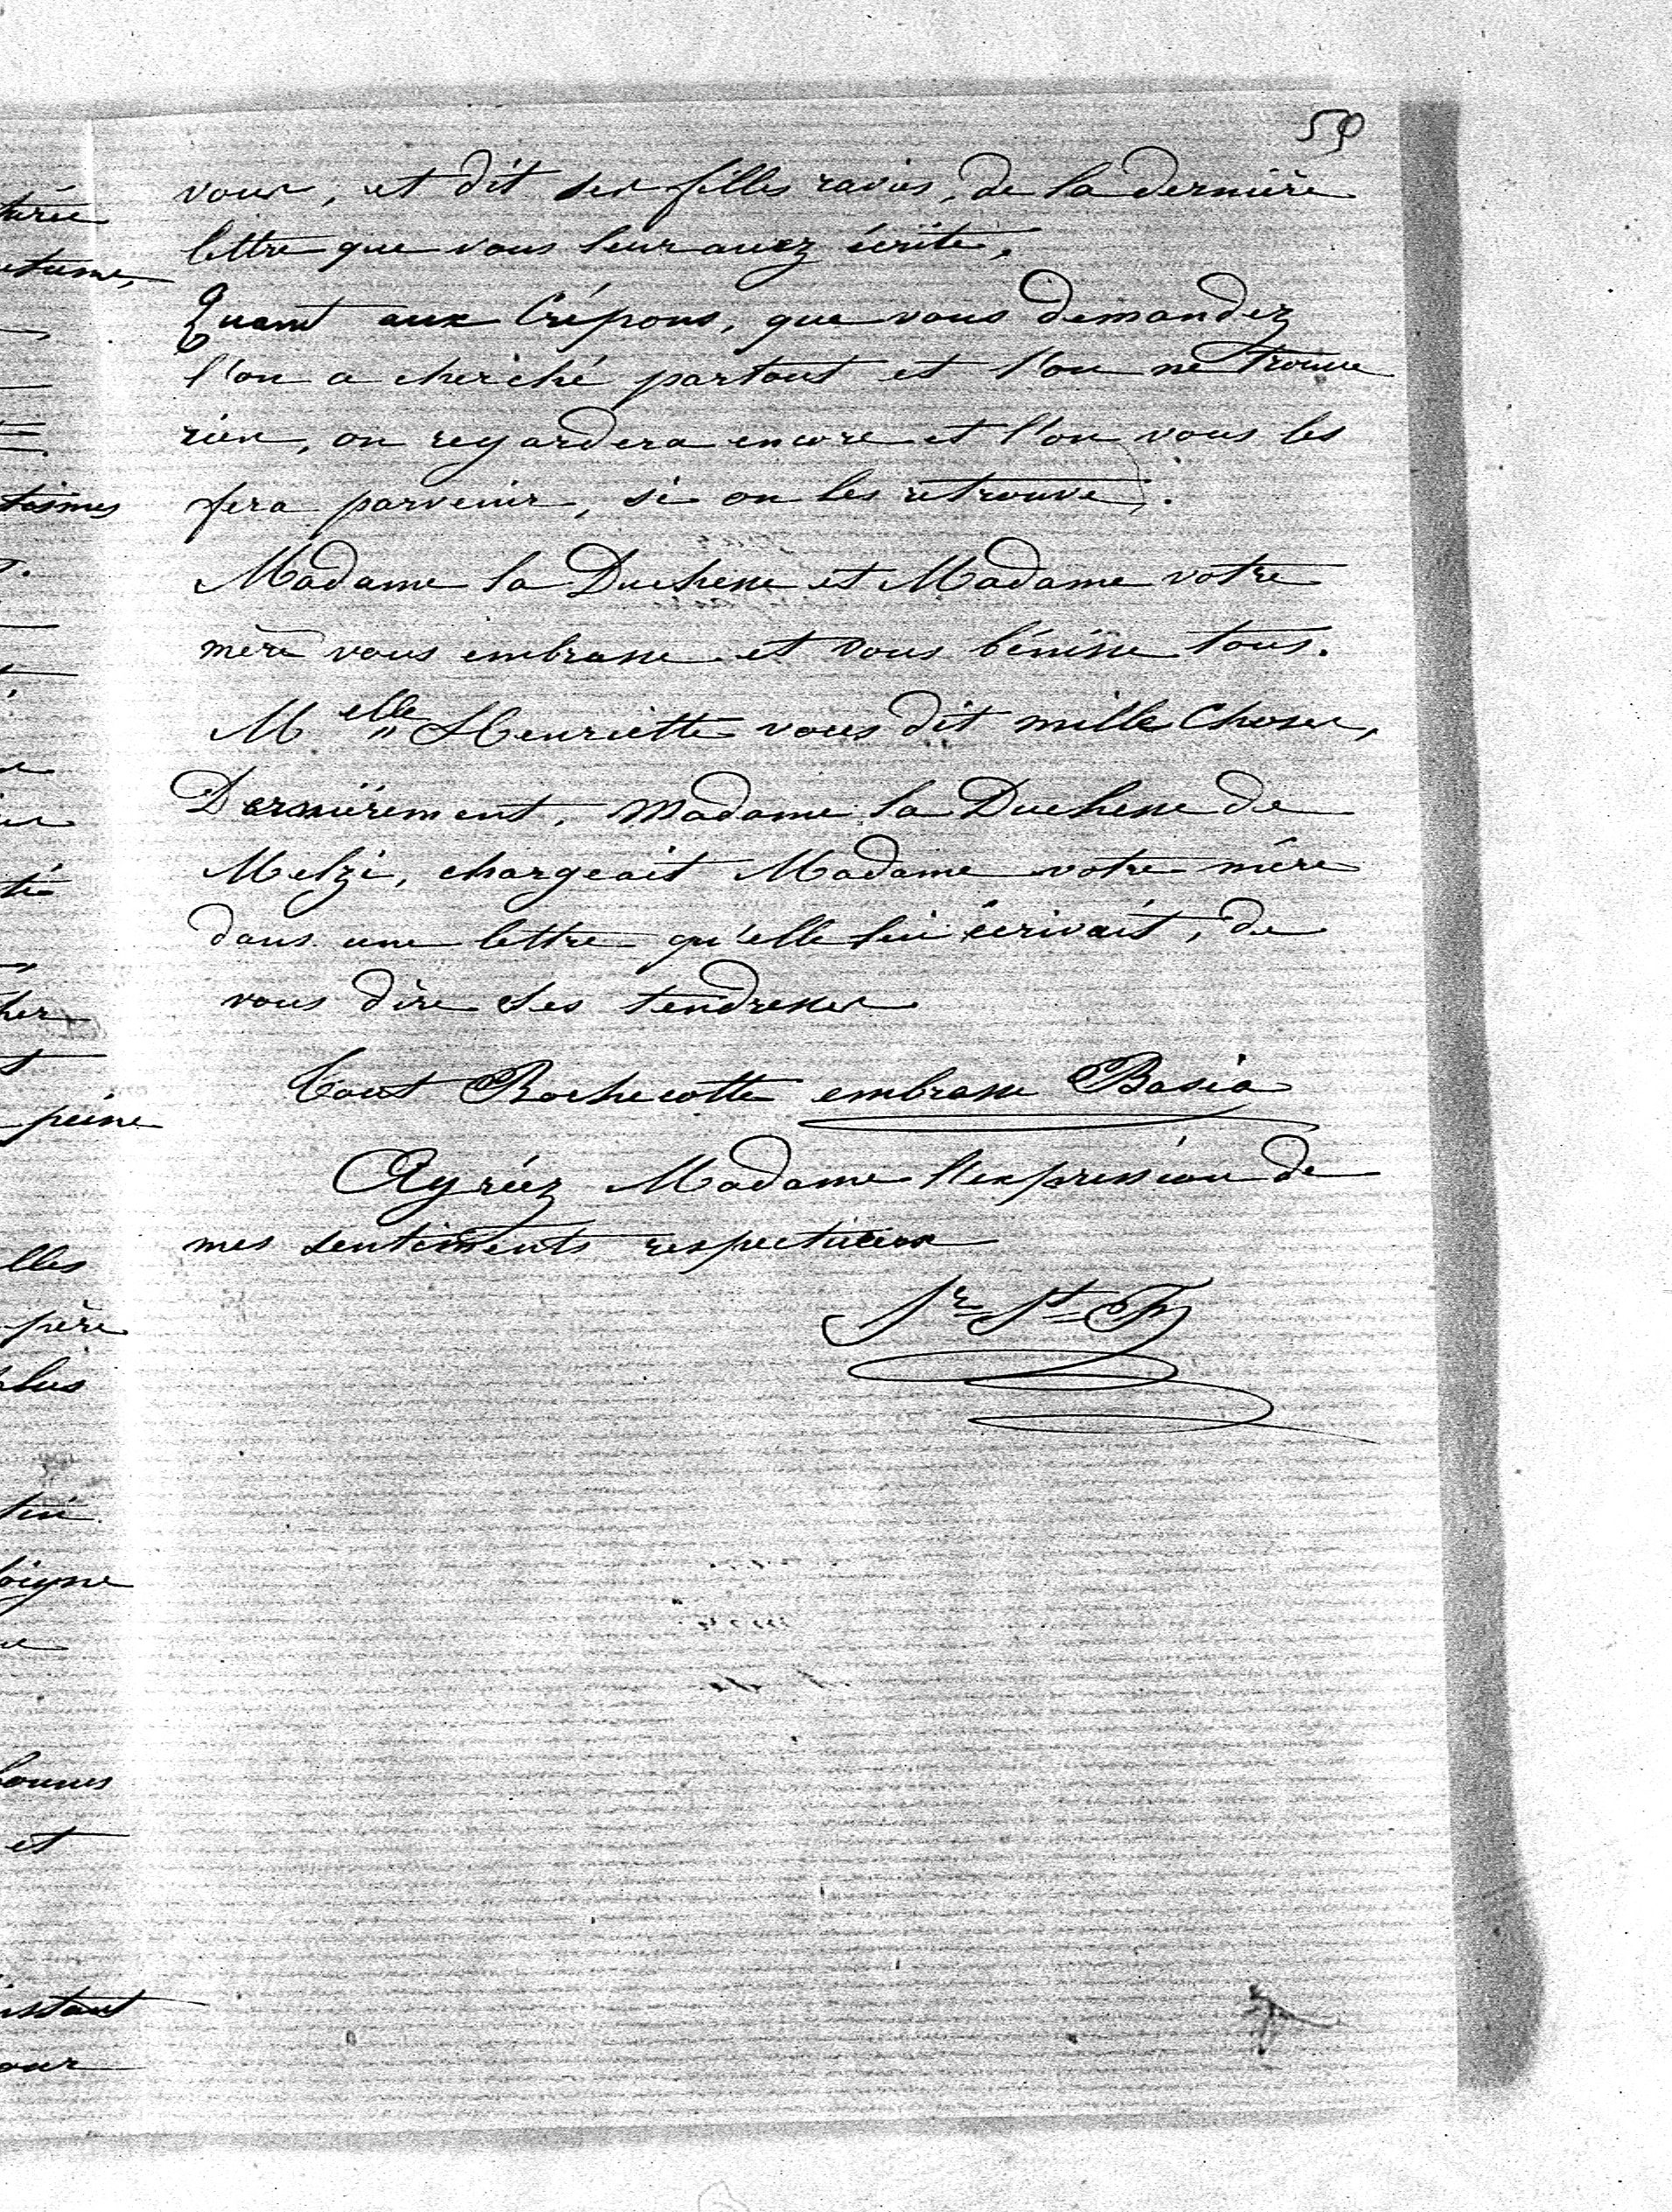 59
vous, et dit ses filles ravies, de la dernière
lettre que vous leur avez écrite.
Quant aux Crépons, que vous demandez
l'on a cherché partout et l'on ne trouve
rien, on regardera encore et l'on vous les
fera parvenir, si on les retrouve.
Madame la Duchesse et Madame votre
mère vous embrasse et vous bénisse tous.
Melle Henriette vous dit mille Choses,
Dernièrement, Madame la Duchesse de
Melzi, chargeait Madame votre mère
dans une lettre qu'elle lui écrivait, de
vous dire ses tendresses
Tout Rochecotte embrasse Basia
Agréez Madame l'expression de
mes sentiments respectueux
peine
lles
père
plus
et